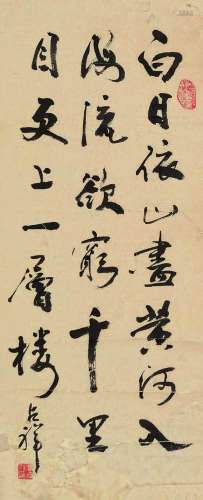 白日依山盡黄河入
海流欲窮千里
目更上一層楼
占祥